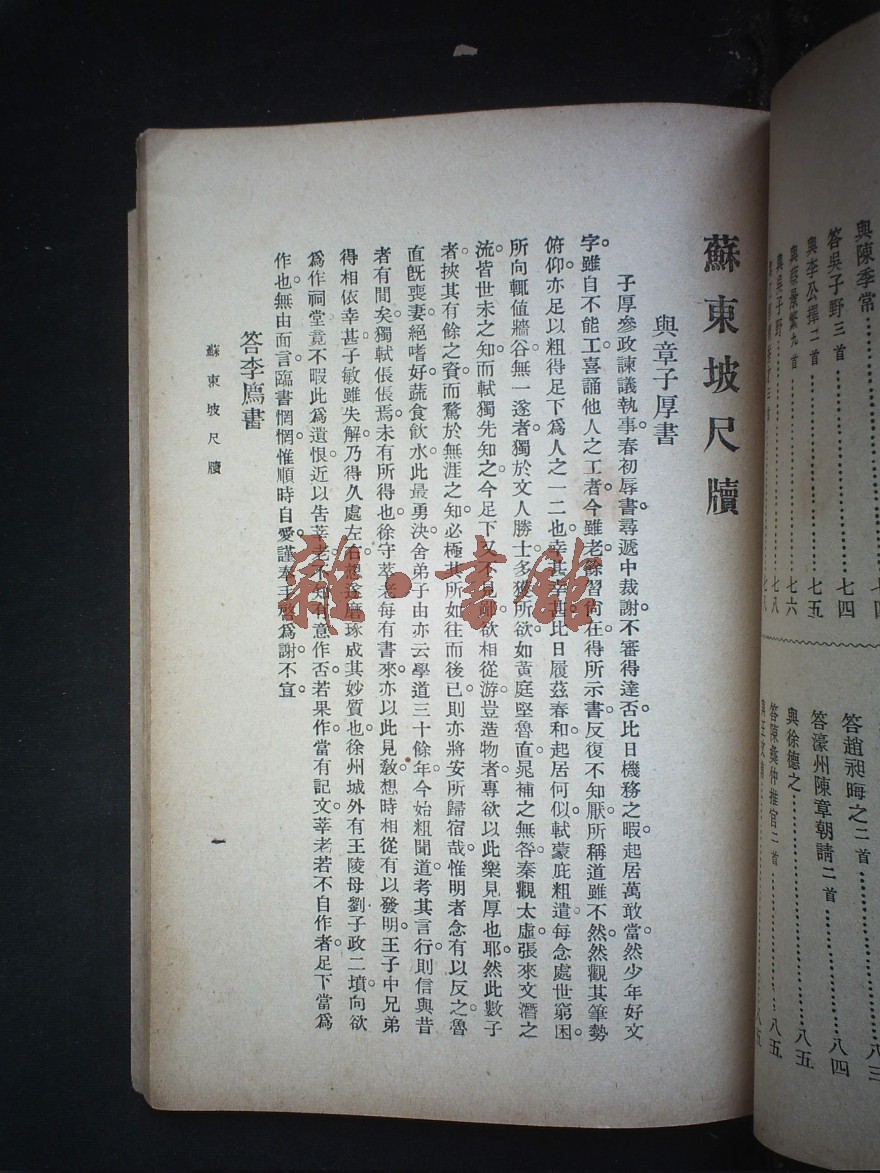 與陳季常……七四
答吳子野三首……七四
與李公擇二首……七五
與蔡景繁九首……七六
與吳子野……七八
答趙昶晦之二首……八三
答濠州陳章朝請二首……八四
與徐德之……八五
答陳彝仲推官二首……八五
蘇東坡尺牘
與章子厚書
子厚參政諫議執事春初辱書。尋遞中裁謝。不審得達否。比日機務之暇。起居萬敢當。然少年好文
字。雖自不能工。喜誦他人之工者。今雖老。餘習尙在。得所示書。反復不知厭。所稱道雖不然。然觀其筆勢
俯仰。亦足以粗得足下爲人之一二也。幸甚幸甚。比日履茲春和。起居何似。軾蒙庇粗遣。每念處世窮困。
所向輒值牆谷。無一遂者。獨於文人勝士。多獲所欲。如黃庭堅魯直。晁補之無咎。秦觀太虛。張來文潛之
流。皆世未之知。而軾獨先知之。今足下又不見鄙。欲相從游。豈造物者。專欲以此樂見厚也耶。然此數子
者。挾其有餘之資。而騖於無涯之知。必極其所如往而後已。則亦將安所歸宿哉。惟明者念有以反之。魯
直旣喪妻。絕嗜好。蔬食飲水。此最勇決。舍弟子由亦云。學道三十餘年。今始粗聞道。考其言行。則信與昔
者有間矣。獨軾倀倀焉。未有所得也。徐守莘老。每有書來。亦以此見敎。想時相從。有以發明。王子中兄弟
得相依。幸甚。子敏雖失解。乃得久處左右。想遂磨琢。成其妙質也。徐州城外。有王陵母劉子政二墳。向欲
爲作祠堂。竟不暇。此爲遺恨。近以告莘老。不知有意作否。若果作。當有記文。莘老若不自作者。足下當爲
作也。無由面言。臨書惘惘。惟順時自愛。謹奉手啓爲謝。不宣。
答李廌書
蘇東坡尺牘
一
雜·書館